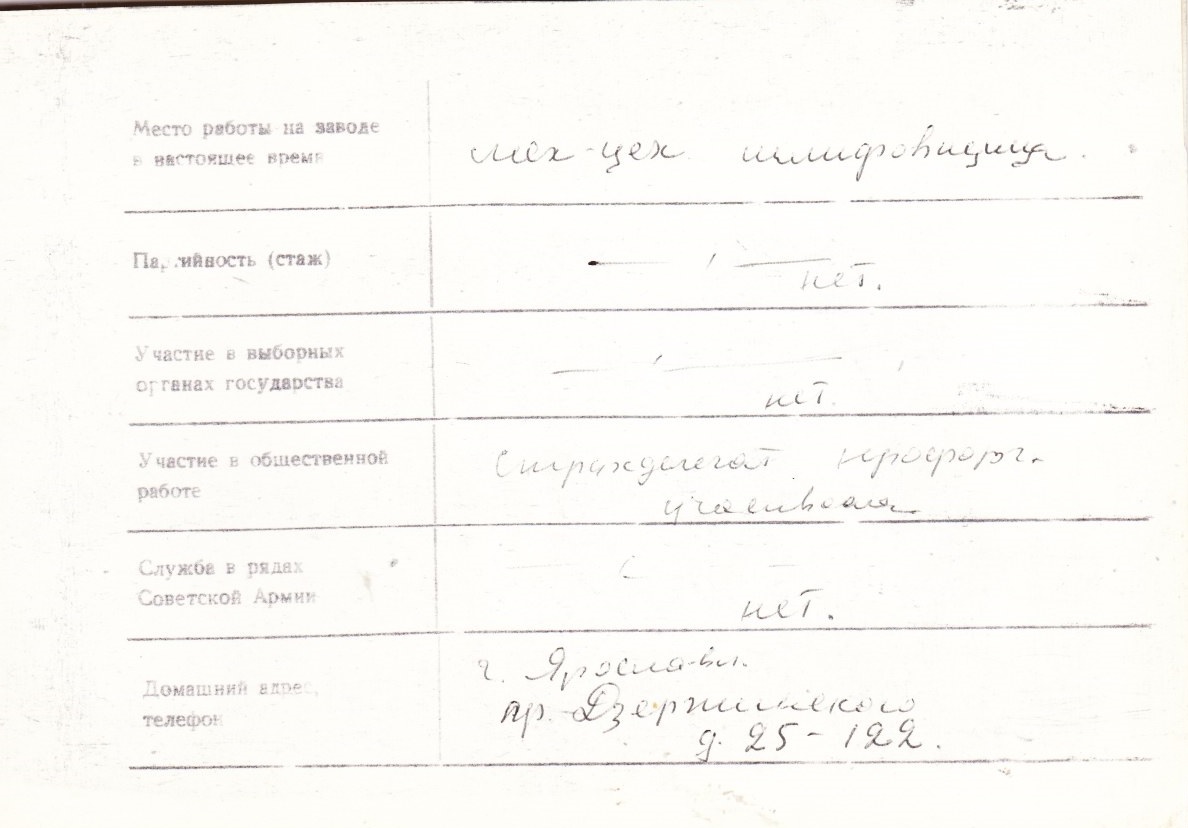 Место работы на заводе
в настоящее время
мех-цех шлифовщица.
Партийность (стаж)
— " —
нет.
Участие в выборных
органах государства
— " — "
нет.
Участие в общественной
работе
Страхделегат профорг.
участвовала
Служба в рядах
Советской Армии
нет.
Домашний адрес,
телефон
г. Ярославл.
пр. Дзержинского
д. 25-122.